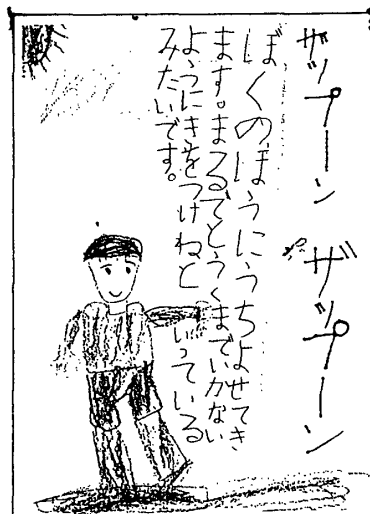 ザップーン ザップーン
ぼくのほうにうちよせてき
ます。まるでとうくまでいかない
ようにきをつけねといっている
みたいです。